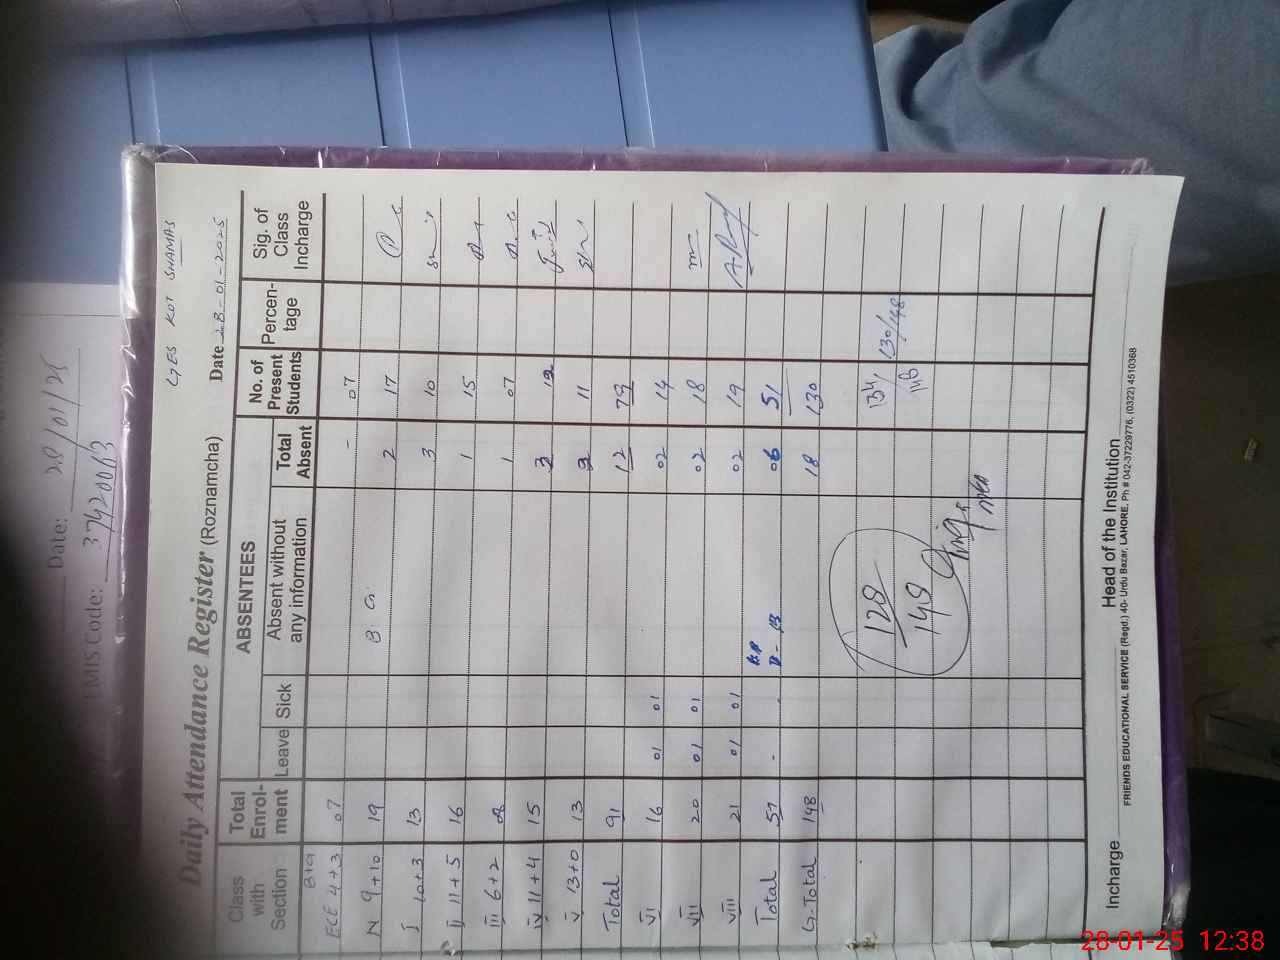 Date: 28/01/25
EMIS Code: 37420063
GES KOT SHAMAS
Daily Attendance Register (Roznamcha) Date 28-01-2025
Class with Section | Total Enrol-ment | ABSENTEES | No. of Present Students | Percen-tage | Sig. of Class Incharge
Leave | Sick | Absent without any information | Total Absent
B+G
ECE 4+3 07 - 07
N 9+10 19 B. G. 2 17
I 10+3 13 3 10
II 11+5 16 1 15
III 6+2 08 1 07
IV 11+4 15 3 12
V 13+0 13 2 11
Total 91 12 79
VI 16 01 01 02 14
VII 20 01 01 02 18
VIII 21 01 01 02 19
Total 57 - - 06 51
G.Total 148 18 130
134/148 130/148
128/148
Incharge Head of the Institution
FRIENDS EDUCATIONAL SERVICE (Regd.) 40- Urdu Bazar, LAHORE, Ph # 042-37229776, (0322) 4510368
28-01-25 12:38